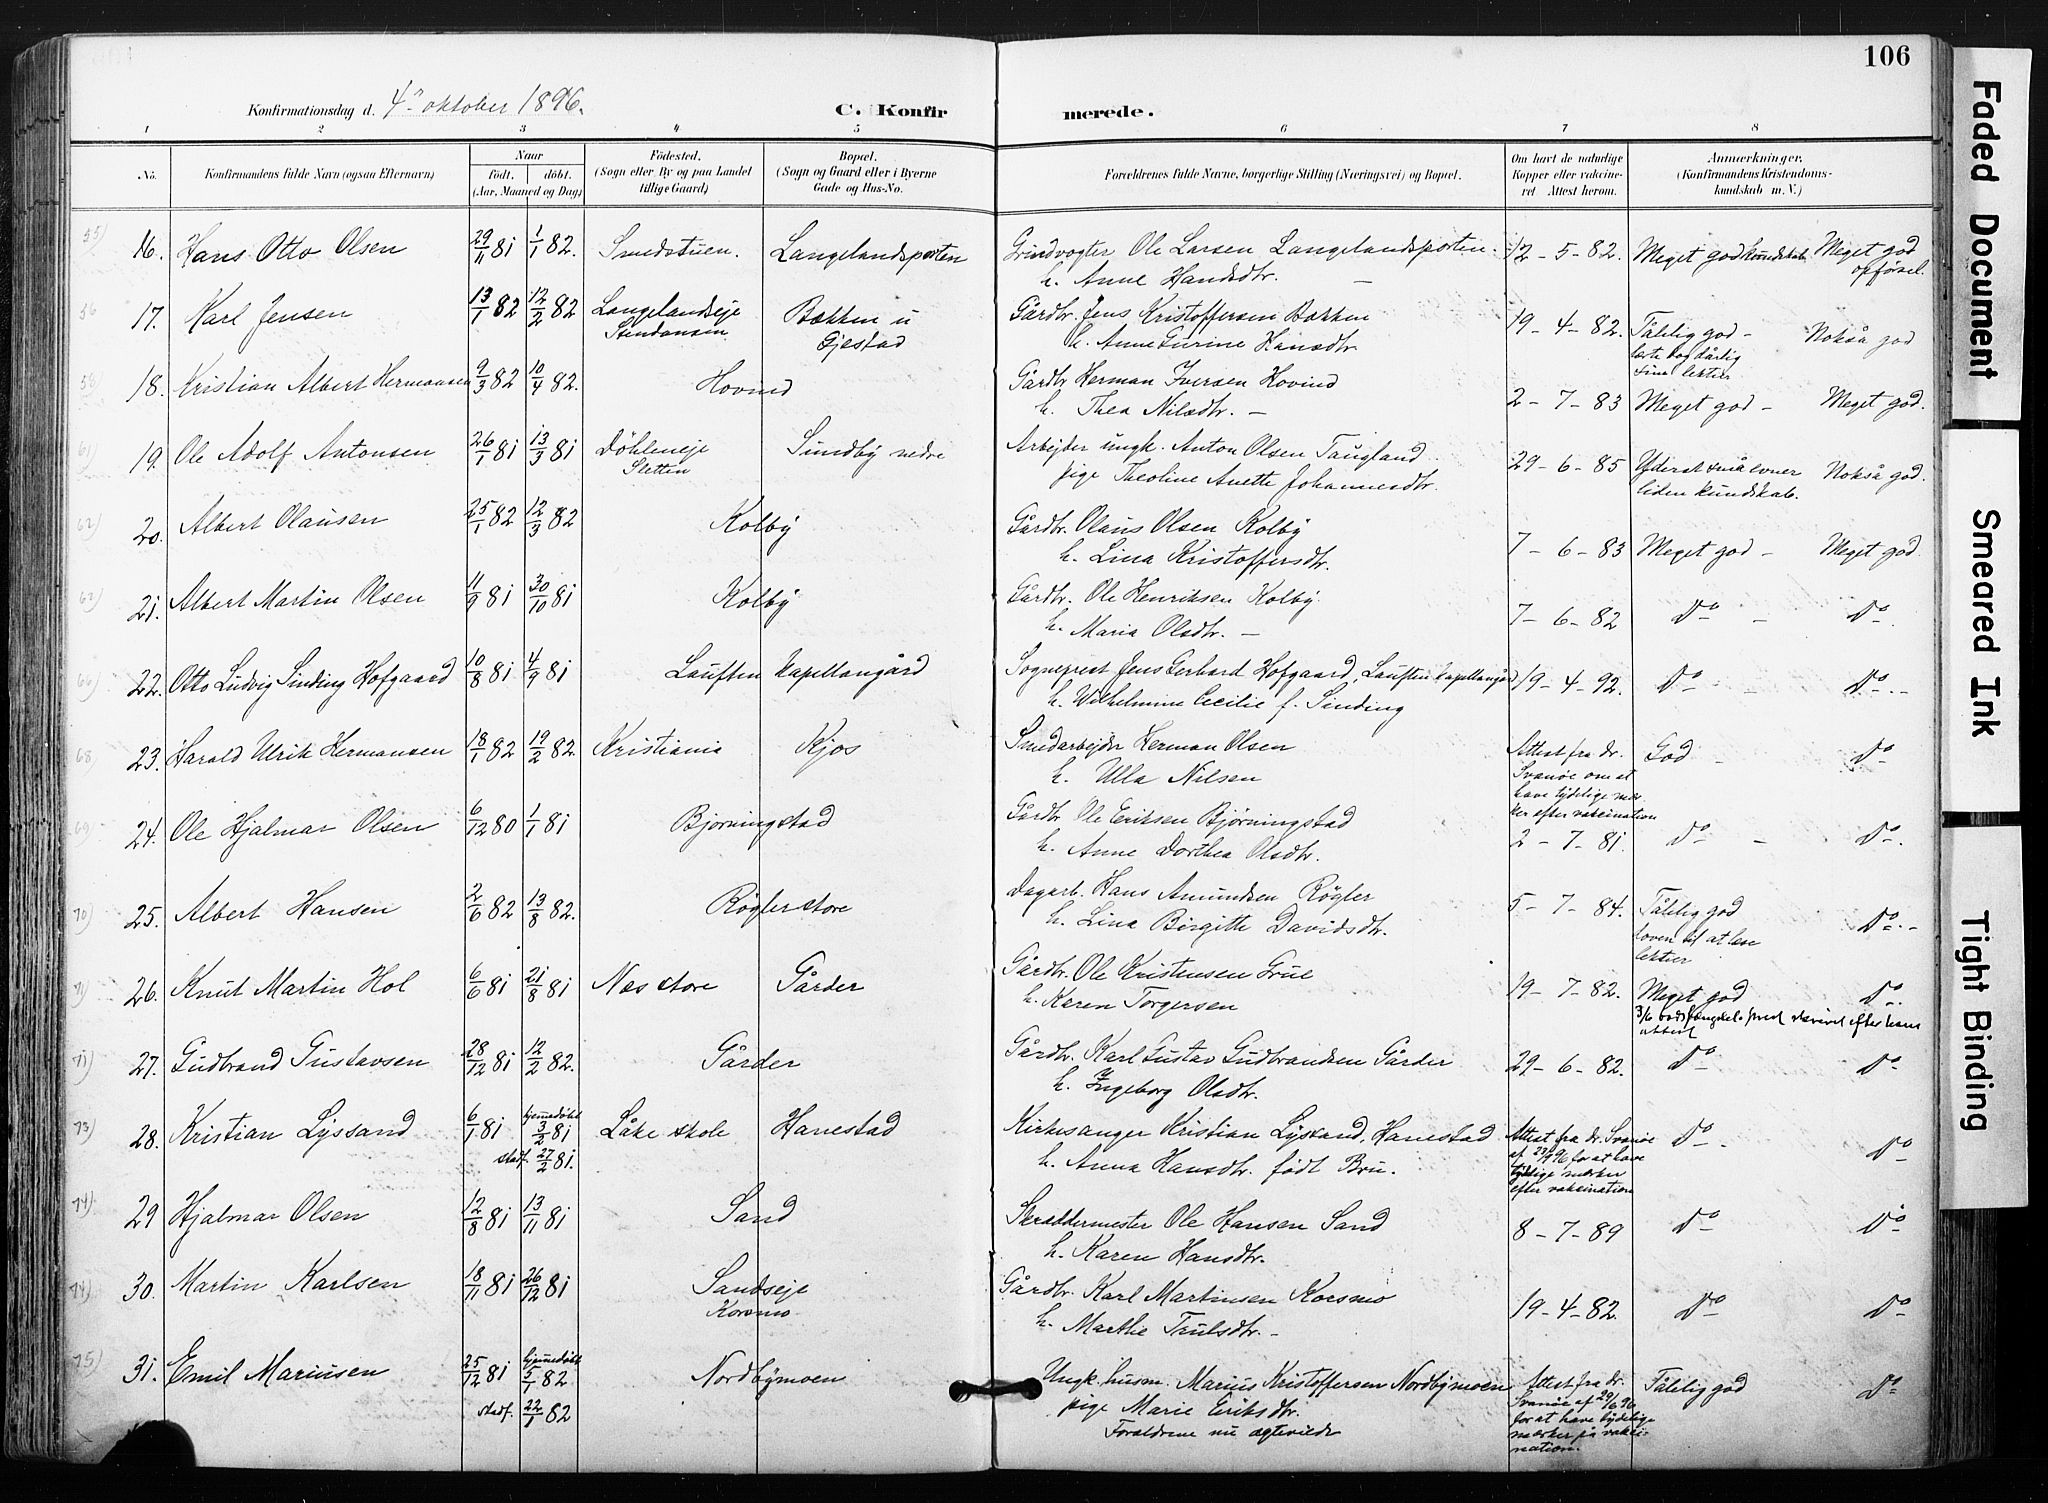 106
Konfirmationsdag d. 4de oktober 1896.
C. Konfir merede.
1 2 3 4 5 6 7 8
No. Konfirmandens fulde Navn (ogsaa Efternavn) Naar født. døbt. (Aar, Maaned og Dag) Fødested. (Sogn eller By og paa Landet tillige Gaard) Bopæl. (Sogn og Gaard eller i Byerne Gade og Hus-No. Forældrenes fulde Navne, borgerlige Stilling (Næringsvei) og Bopæl. Om havt de naturlige Kopper eller vakcineret Attest herom. Anmærkninger. (Konfirmandens Kristendomskundskab m. V.)
55 16. Hans Otto Olsen 29/11 81 1/1 82. Smedstuen. Langelandsporten Grindvogter Ole Larsen Langelandsporten. 12-5-82. Meget god kundskab Meget god opførsel.
h. Anne Hansdtr. —
56 17. Karl Jensen 13/1 82 12/2 82 Langelandseje Bækken u Gjestad Gårdbr. Jens Kristoffersen Bækken 19-4-82. Tålelig god - Nokså god
h. Anne Gurine Hansdtr. læste dog dårlig sine lektier
58 18. Kristian Albert Hermansen 9/3 82 10/4 82. Hovind Gårdbr Herman Iversen Hovind 2-7-83 Meget god - Meget god.
h. Thea Nilsdtr. —
61) 19. Ole Adolf Antonsen 26/1 81 13/3 81 Döhleneje Sletten Sundby nedre Arbejder ungk. Anton Olsen Taugland 29-6-85 Yderst små evner Nokså god.
pige Theoline Anette Johannesdtr. liden kundskab.
62) 20. Albert Olausen 25/1 82 12/3 82 Kolby Gårdbr. Olaus Olsen Kolby 7-6-83 Meget god - Meget god.
h. Lina Kristoffersdtr.
62) 21. Albert Martin Olsen 11/9 81 30/10 81 Kolby Gårdbr. Ole Henriksen Kolby. 7-6-82 Do - Do.
h. Maria Olsdtr. —
66) 22. Otto Ludvig Sinding Hofgaard 10/8 81 4/9 81 Lauften kapellangård Sogneprest Jens Gerhard Hofgaard, Lauften kapellangård 19-4-92. Do - Do.-
h. Wilhelmine Cecilie f. Sinding
68) 23. Harald Ulrik Hermansen 18/1 82 19/2 82. Kristiania Kjos Smedarbejder Herman Olsen Attest fra dr. Svanöe om at have tydelige mærker efter vaksination God - Do
h. Ulla Nilsen
69) 24. Ole Hjalmar Olsen 6/12 80 1/1 81 Bjørningstad Gårdbr Ole Eriksen Bjørningstad 2-7-81. Do - Do.
h. Anne Dorthea Olsdtr.
70) 25. Albert Hansen 2/6 82 13/8 82. Røgler store Dagarb. Hans Amundsen Røgler 5-7-84. Tålelig god Do.-
h. Lina Birgitte Davidsdtr. doven til at læse lektier
71) 26. Knut Martin Hol 6/6 81 21/8 81 Næs store Gårder Gårdbr. Ole Kristensen Grue 19-7-82. Meget god Do.
h. Karen Torgersen
71) 27. Gudbrand Gustavsen 28/12 81 12/2 82. Gårder Gårdbr. Karl Gustav Gudbrandsen Gårder 29-6-82. Do Do
h. Ingeborg Olsdtr.
73) 28. Kristian Lyssand 6/1 81 hjemmedøbt 3/2 81 stadf. 27/2 81. Låke skole Hanestad Kirkesanger Kristian Lyssand, Hanestad Attest fra dr. Svanöe af 29/9 96 for at have tydelige mærker efter vaksination Do - Do
h. Anna Hansdtr. født Bru.
74) 29 Hjalmar Olsen 12/8 81 13/11 81 Sand Skræddermester Ole Hansen Sand 8-7-89 Do Do
h. Karen Hansdtr.
74) 30. Martin Karlsen 18/11 81 26/12 81 Sandseje Korsmo Gårdbr. Karl Martinsen Korsmo 19-4-82. Do Do
h. Marthe Trulsdtr. -
75) 31. Emil Mariusen 25/12 81 hjemmedøbt 5/1 82 stadf. 22/1 82 Nordbymoen Ungk. husm. Marius Kristoffersen Nordbymoen Attest fra dr. Svanöe af 29/6 96 for at have tydelige mærker på vaksination. Tålelig god Do
pige Marie Eriksdtr.
Forældrene nu ægteviede
Faded Document
Smeared Ink
Tight Binding